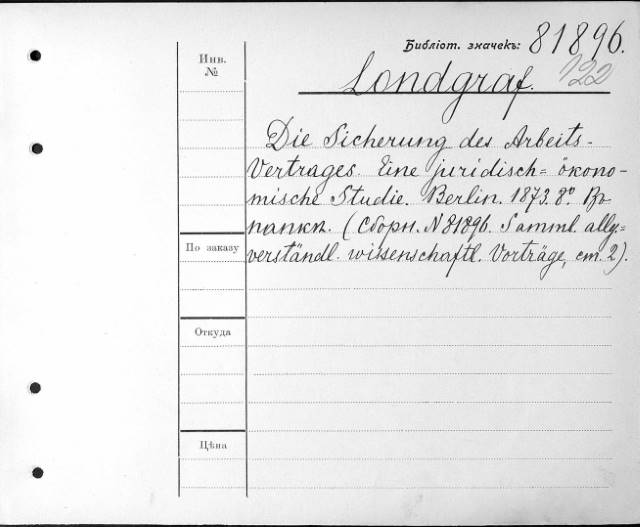 Библіот. значекъ: 81896.
Инв. №
Londgraf. 122
Die Sicherung des Arbeits-
Vertrages. Eine juridisch= ökono-
mische Studie. Berlin. 1873. 8º. Въ
папкѣ. (Сборн. N 81896. Samml. allg=
По заказу
verständl. wissenschaftl. Vorträge, ст. 2).
Откуда
Цѣна